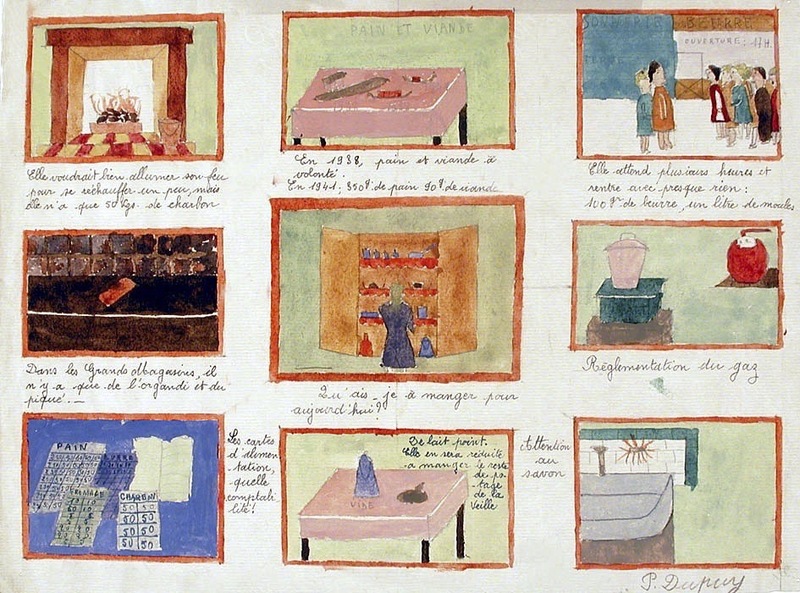 PAIN ET VIANDE
BEURRE
OUVERTURE: 11H.
Elle voudrait bien allumer son feu
pour se réchauffer un peu, mais
elle n'a que 50 kgs. de charbon
En 1938, pain et viande à
volonté.
En 1941: 350g. de pain 90g. de viande
Elle attend plusieurs heures et
rentre avec presque rien:
100 gr de beurre, un litre de moules
Dans les Grands Magasins, il
n'y a que de l'organdi et du
piqué.-
Qu'ais-je à manger pour
aujourd'hui?
Réglementation du gaz
PAIN
CHARBON
50 50
50 50
50 50
50 50
Les cartes
d'alimen
tation,
quelle
comptabi
lité!
De lait point.
Elle en sera réduite
à manger le reste
de po-
tage
de la
Veille
VIDE
Attention
au
savon
P. Dupuy